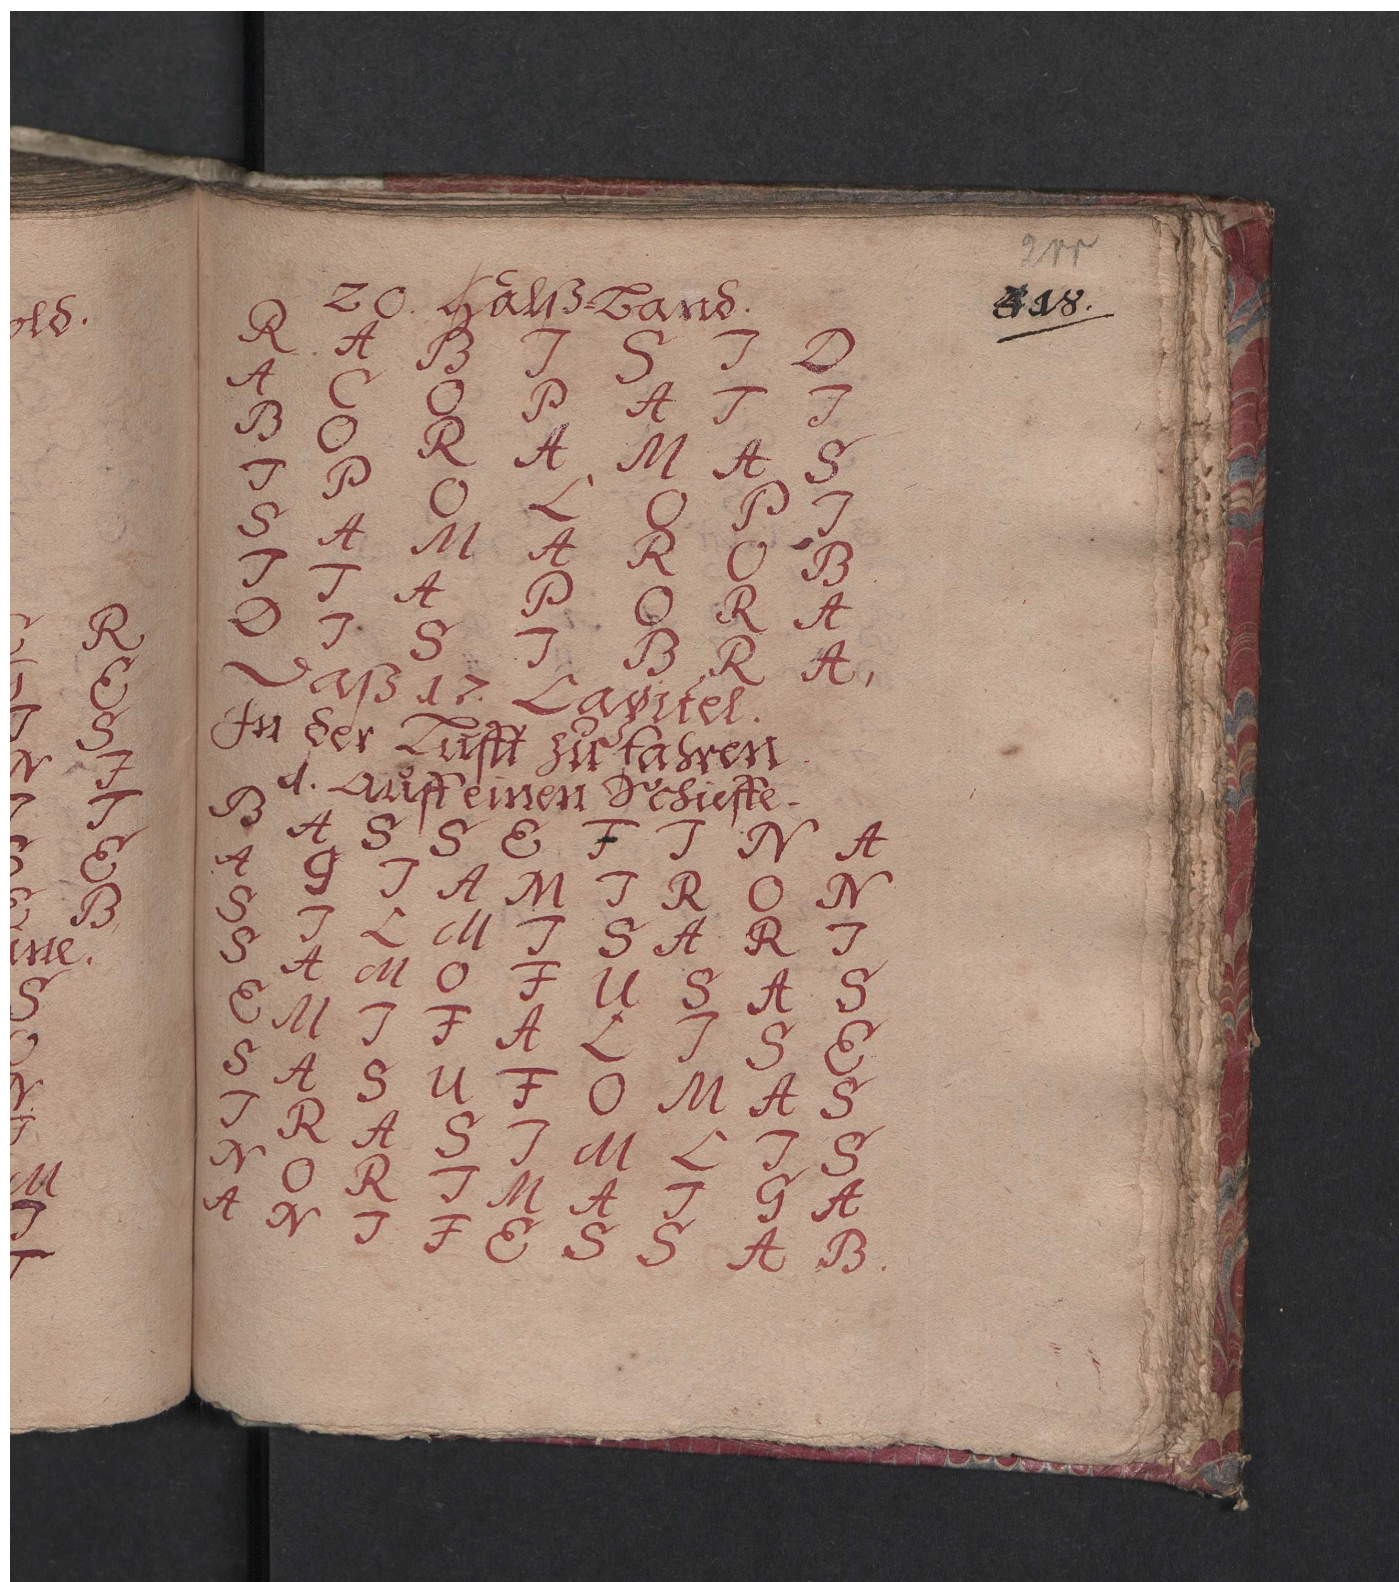 old.
R
E
S
N I
T
E
B
ine.
S
O
N
F
M
I
T
211
418.
20. Halß-Band.
R A B I S I D
A C O P A T I
B O R A M A S
I P O L O P I
S A M A R O B
I T A P O R A
D I S I B R A,
Daß 17. Capitel.
In der Lufft zu fahren
1. Auff einen Schieffe.
B A S S E F I N A
A G I A M I R O N
S I L M I S A R I
S A M O F U S A S
E M I F A L I S E
S A S U F O M A S
I R A S I M L I S
N O R I M A I G A
A N I F E S S A B.